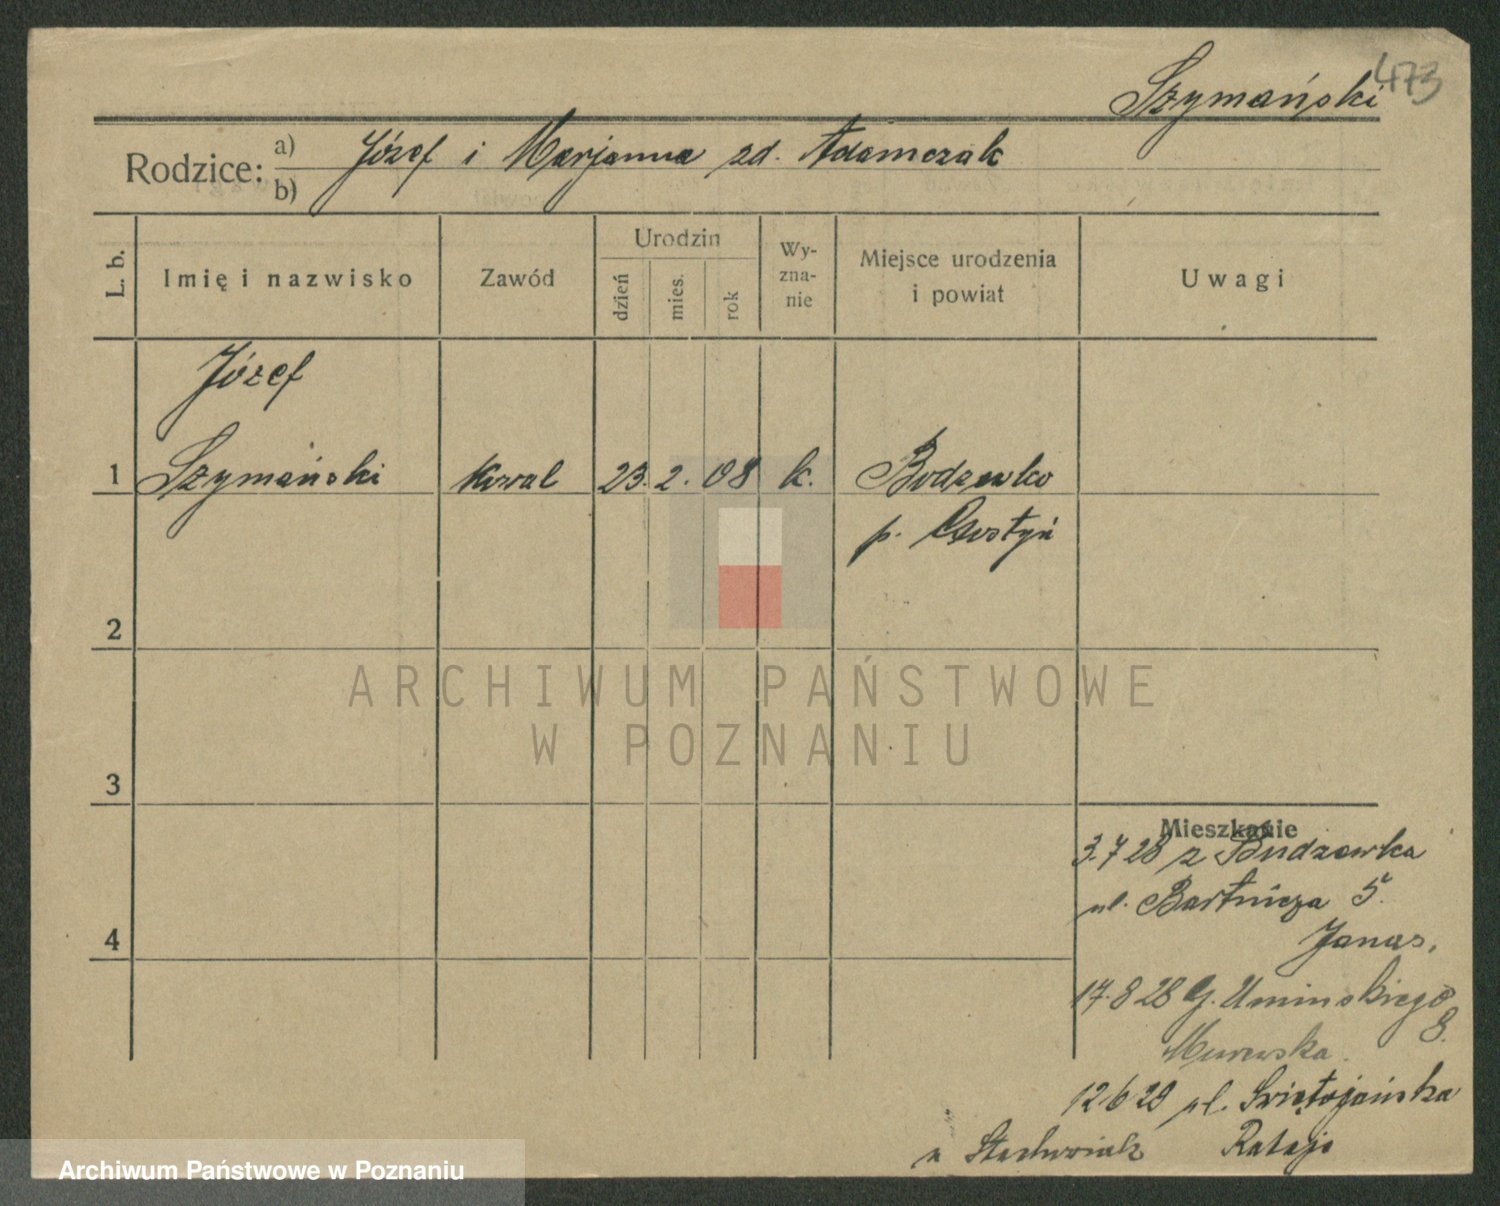 473
Szymański
Rodzice: a) Józef i Marjanna zd. Adamczak
b)
L. b.
Imię i nazwisko
Zawód
Urodzin
dzień
mies.
rok
Wy-
zna-
nie
Miejsce urodzenia
i powiat
Uwagi
Józef
1 Szymański kowal 23. 2. 08 k. Budzewko
p. Gostyń
2
3
4
Mieszkanie
3.7 28 z Budzewka
ul. Bartnicza 5.
Janas,
17.8 28 G. Umińskiego
8.
Murawska.
12.6 29 ul. Świętojańska
u Stachowiak Rataje
ARCHIWUM PAŃSTWOWE
W POZNANIU
Archiwum Państwowe w Poznaniu